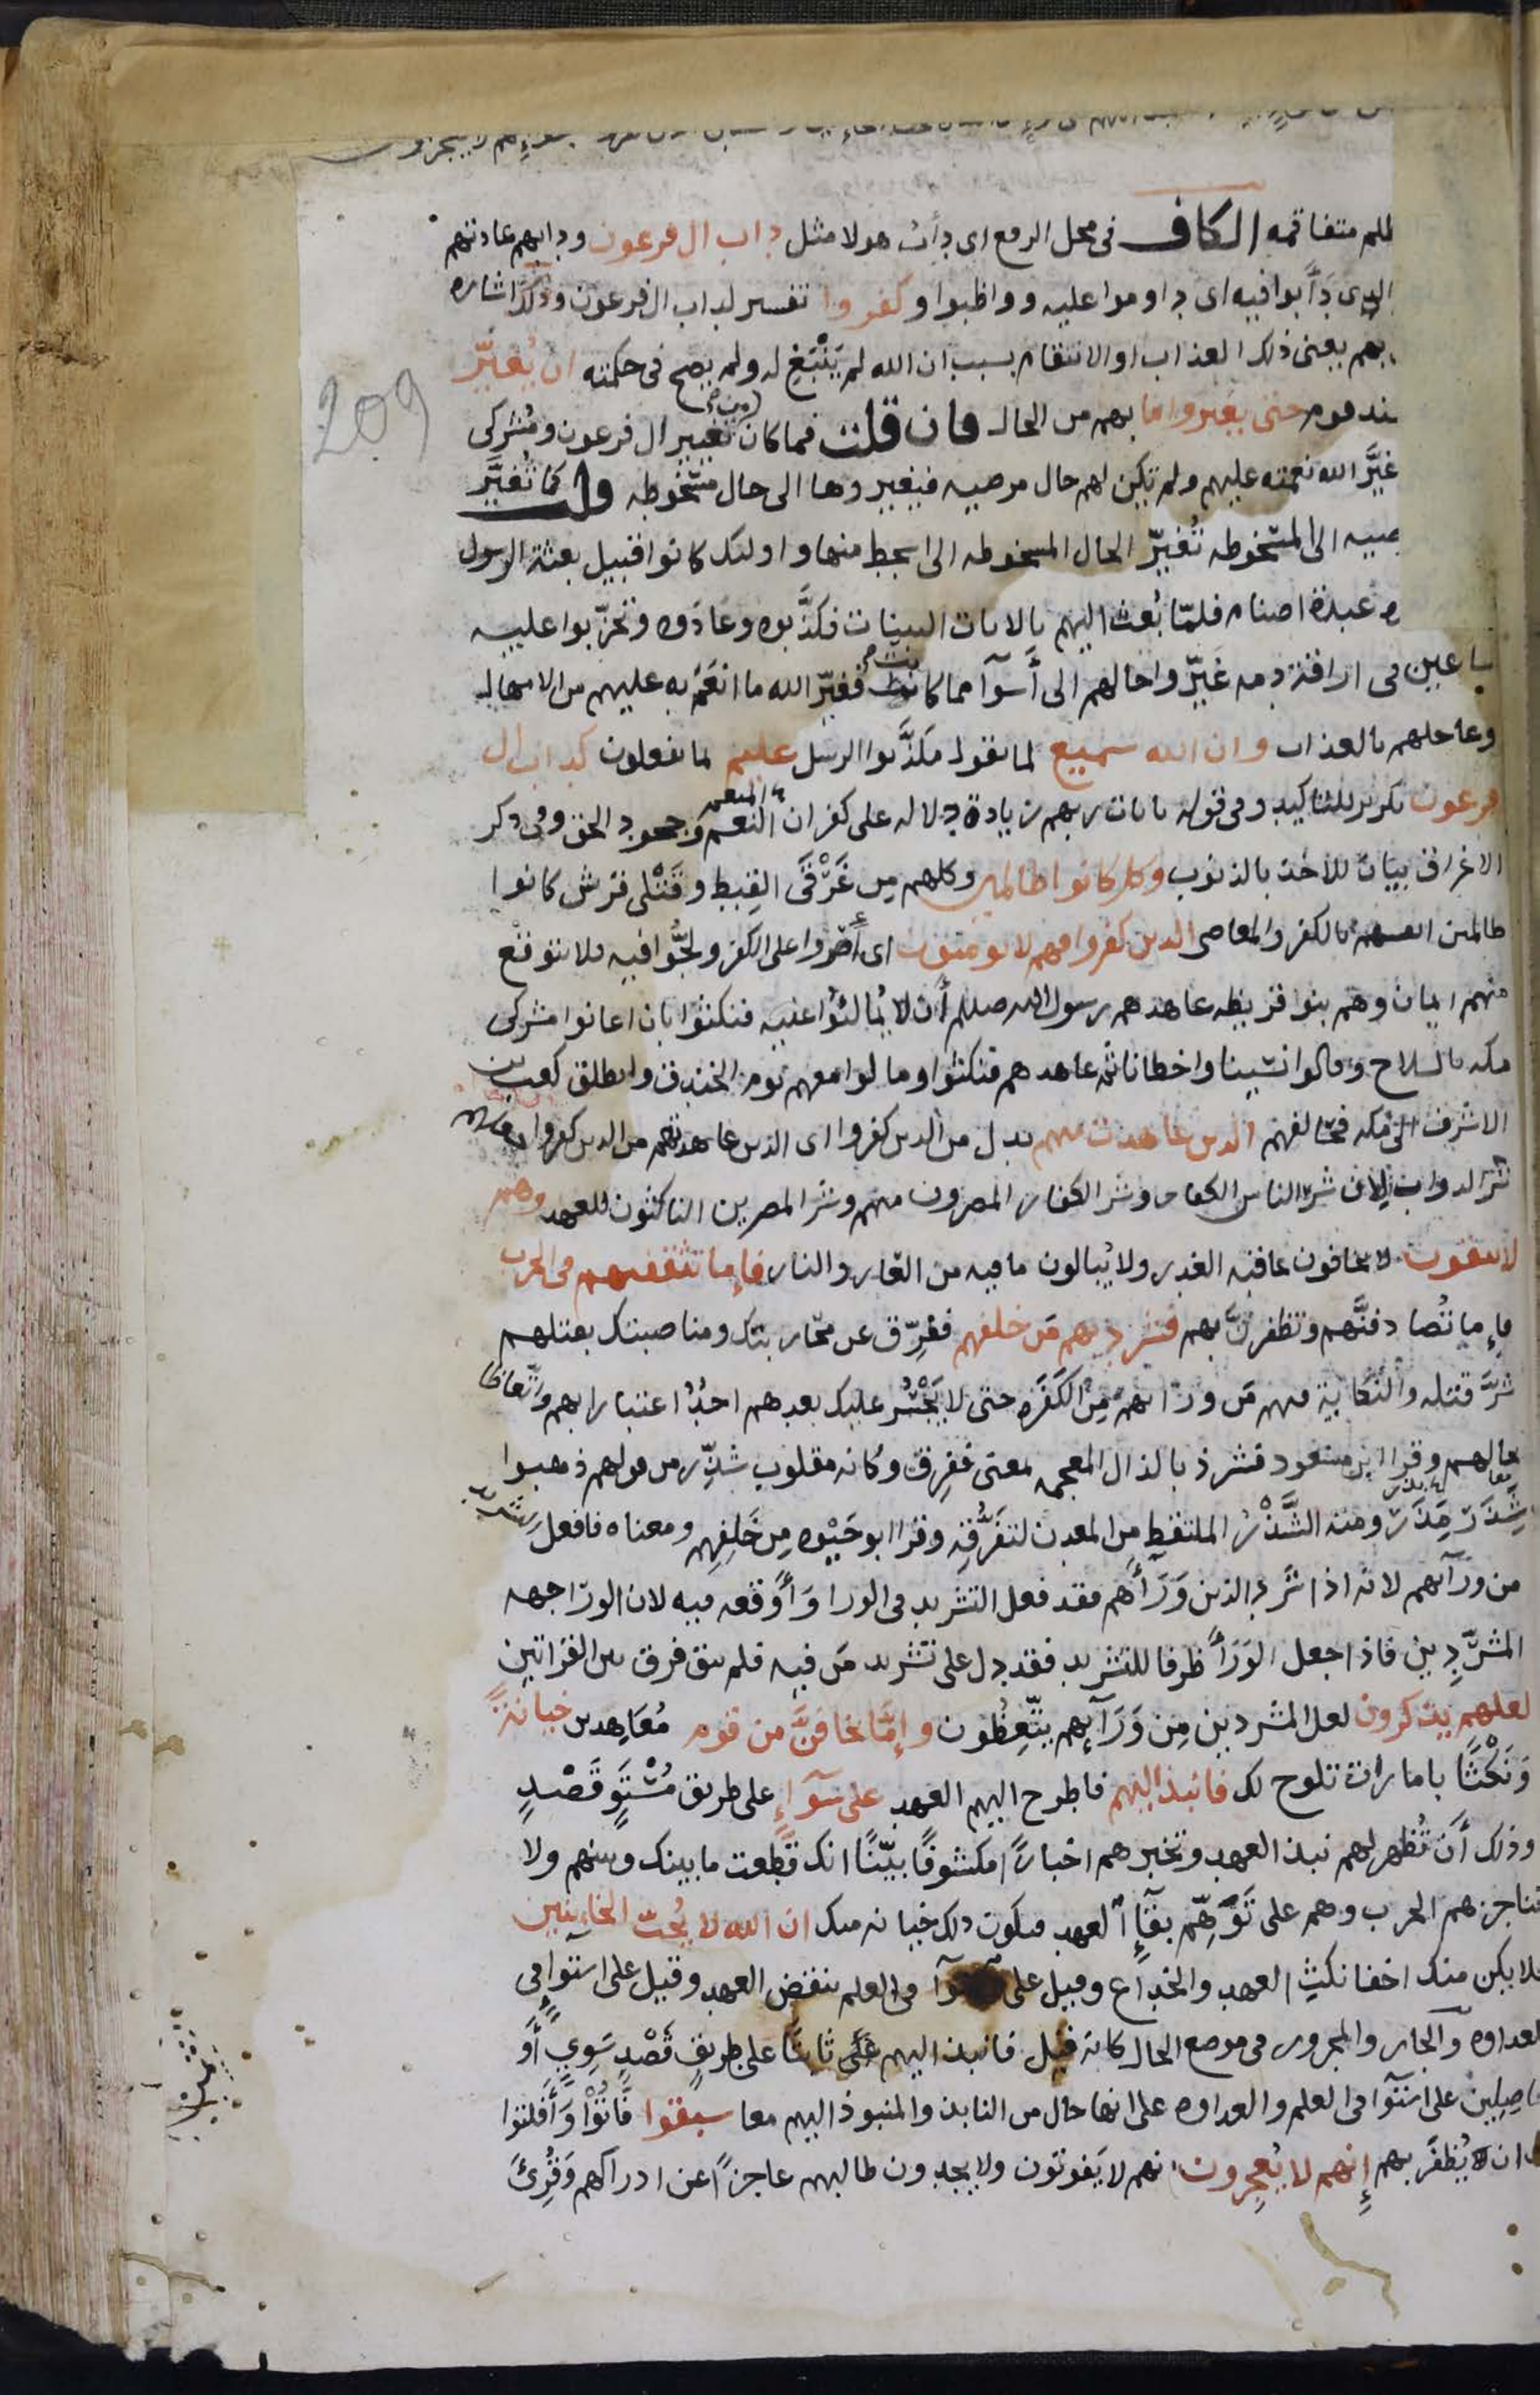 للم متفاقمه الكاف فى محل الرفع اى دأب هولا مثل داب ال فرعون ودابهم عادتهم
الذى دَأبوا فيه اى داوموا عليه وواظبوا وكفروا تفسير لداب ال فرعون وذلك اشاره
بهم يعنى ذلك العذاب او الانتقام بسبب ان الله لم يَنْبَغِ له ولم يصح فى حكمته ان يُغيّر
عند قوم حتى يغيروا ما بهم من الحال فان قلت فما كان تغيير ال فرعون ومُشركى
209
غيَّر الله نعمته عليهم ولم تكن لهم حال مرضيه فيغيروها الى حال مسخوطه قلت كما تُغيَّر
ضيه الى المسخوطه تُغيّر الحال المسخوطه الى اسخط منها واولئك كانوا قبيل بعثة الرسول
ه عبدة اصنام فلمّا بُعث اليهم بالايات البينات فكذَّبوه وعادَوه وتحزّبوا عليه
ساعين فى اراقة دمه غيّروا حالهم الى أسوآ مما كانت فغيّر الله ما انعَم به عليهم من الامهال
وعاجلهم بالعذاب وان الله سميع لما يقول مكذّبوا الرسل عليم لما يفعلون كداب ال
فرعون تكرير للتاكيد وفى قوله بايات ربهم زيادة دلاله على كفران النعم وجحود الحق وفى ذكر
الاغراق بيان للاخذ بالذنوب وكل كانوا ظالمين وكلهم من غَرْقَى القِبط وقَتْلى قريش كانوا
ظالمين انفسهم بالكفر والمعاصى الذين كفروا فهم لا يومنون اى أصَرّوا على الكفر ولجُّوا فيه فلا يتوقع
منهم ايمان وهم بنوا قريظه عاهدهم رسول الله صللم أن لا يُمالئُوا عليه فنكثوا بان اعانوا مشركى
مكه بالسلاح وقالوا نسينا واخطانا ثم عاهدهم فنكثوا ومالوا معهم يوم الخندق وانطلق كعب بن
الاشرف الى مكه فحالفهم الذين عاهدت منهم بدل من الذين كفروا اى الذين عاهدتهم من الذين كفروا
شر الدواب لان شر الناس الكفار وشر الكفار المصرون منهم وشر المصرين الناكثون للعهد وهم
لا يتقون لا يخافون عاقبه الغدر ولا يُبالون ما فيه من العار والنار فإما تثقفنهم فى الحرب
فإما تُصادفنَّهم وتظفرنَّ بهم فشرد بهم مَن خلفهم ففرّق عن محاربتك ومناصبتك بقتلهم
شرَّ قتله والنكاية فيهم مَن وراهم مِن الكَفَره حتى لا يَجْسُر عليك بعدهم احدٌ اعتبارا بهم واتّعاظا
بحالهم وقرا ابن مسعود فشرذ بالذال المعجمه بمعنى ففرق وكانه مقلوب شذّر من قولهم ذهبوا
شِذَرَ مِذَرَ ومنه الشَّذْرُ الملتقط من المعدن لتفَرُّقِه وقرا ابو حَيْوه مِن خَلفِهم ومعناه فافعل
من ورآئهم لانه اذا شرد الذين وَرَآهم فقد فعل التشريد فى الورا وَأوقعه فيه لان الورا جهه
المشرَّدين فاذا جعل الوَرَآ ظرفا للتشريد فقد دل على تشريد مَن فيه فلم يبق فرق بين القراتين
لعلهم يذكرون لعل المشردين مِن وَرَآئِهم يتّعِظُون وإمّا تخافنَّ من قوم مُعَاهِدين خيانةً
وَنَكْثًا بامارات تلوح لك فانبذ اليهم فاطرح اليهم العهد على سَوآءٍ على طريق مُسْتَوٍ قَصْدٍ
وذلك أن تُظهر لهم نبذ العهد وتخبرهم اخبارًا مكشوفًا بيّنًا انك قطعت ما بينك وبينهم ولا
تناجزهم الحرب وهم على تَوَهُّم بقآءِ العهد فيكون ذلك خيانه منك ان الله لا يُحبّ الخاينين
فلا يكن منك اخفا نكثِ العهد والخداع وقيل على سوآ فى العلم بنقض العهد وقيل على استوآ فى
العداوه والجار والمجرور فى موضع الحال كانه قيل فانبذ اليهم ثابتًا على طريقٍ قَصْدٍ سَوِيٍ أو
حاصِلِين على استوآ فى العلم والعداوه على انها حال من النابذ والمنبوذ اليهم معا سبقوا فَاتُوْا وَأفلتوا
من ان يُظفَر بهم إنهم لا يُعجِزون انهم لا يَفوتون ولا يجدون طالبهم عاجزًا عن ادراكهم وَقُرِئَ